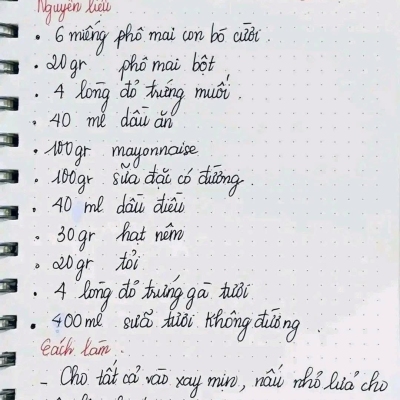 Nguyên liệu
• 6 miếng phô mai con bò cười.
• 20gr phô mai bột
• 4 lòng đỏ trứng muối.
• 40 ml dầu ăn
• 100gr mayonnaise
• 100gr sữa đặc có đường.
• 40 ml dầu điều
• 30gr hạt nêm
• 20gr tỏi
• 4 lòng đỏ trứng gà tươi
• 400ml sữa tươi không đường.
Cách làm.
- Cho tất cả vào xay mịn, nấu nhỏ lửa cho